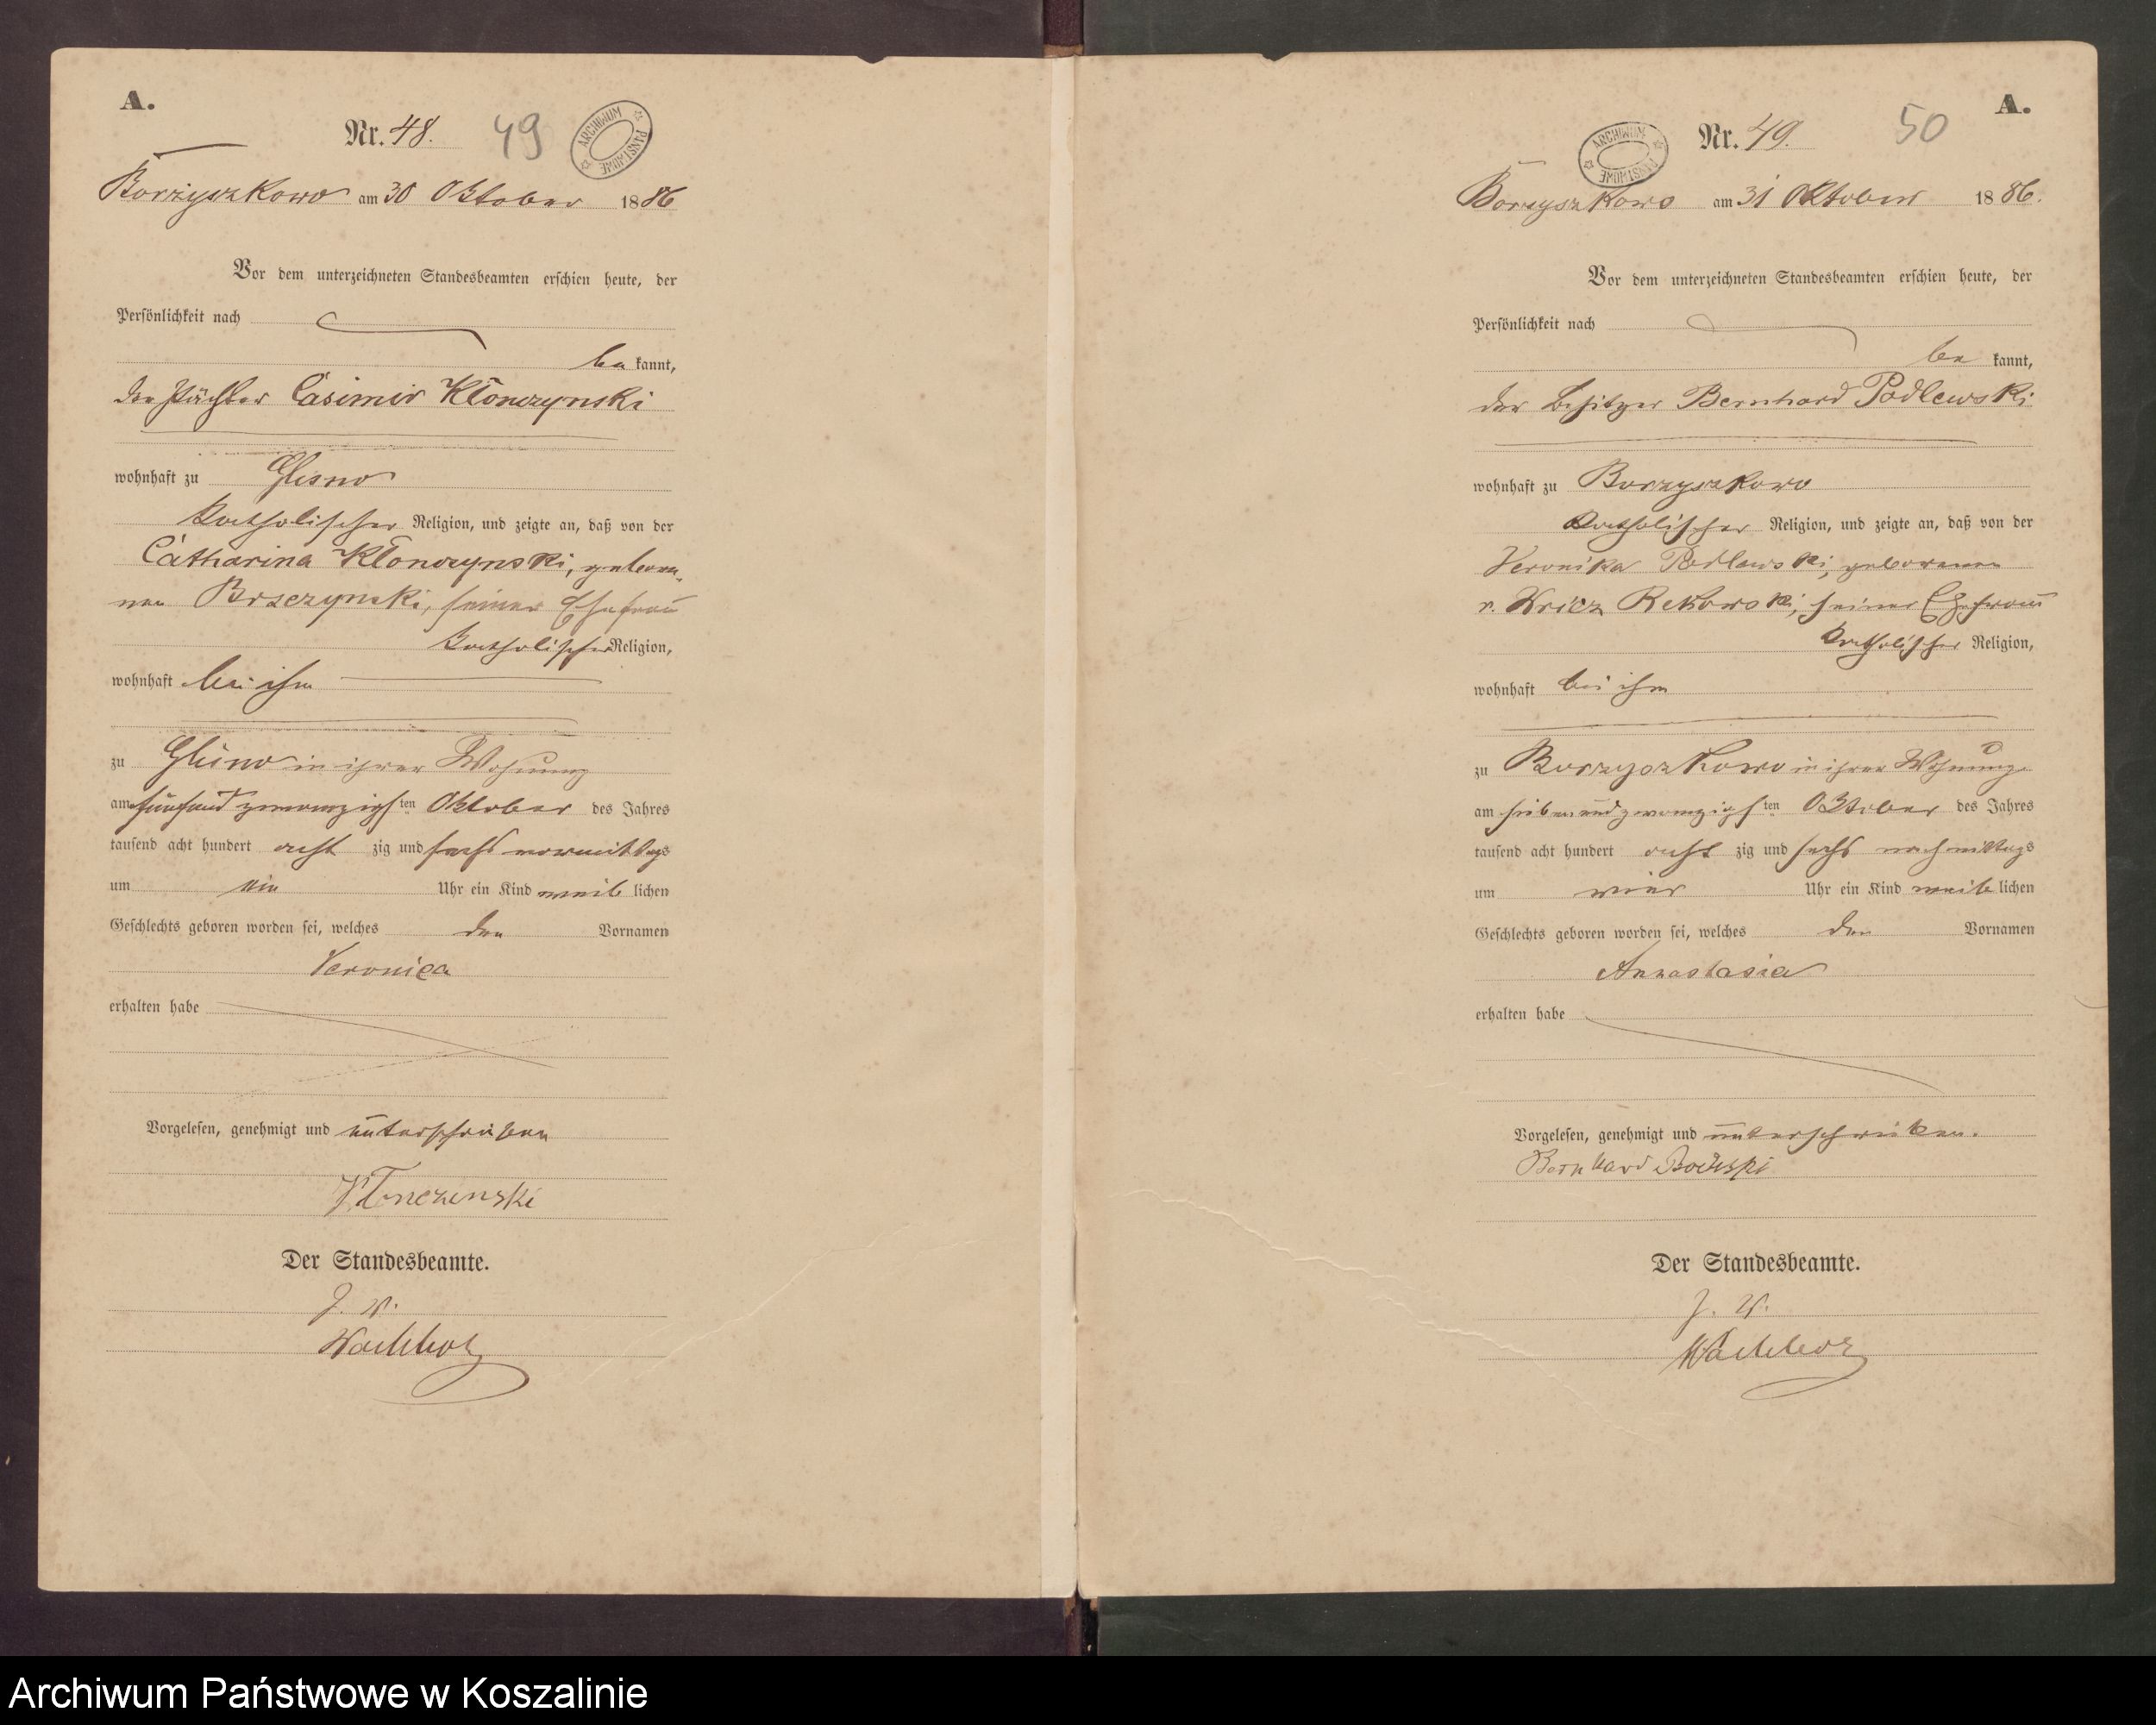 A.
Nr. 48. 49
ARCHIWUM PAŃSTWOWE
Borzyszkowo am 30 Oktober 1886
Vor dem unterzeichneten Standesbeamten erschien heute, der
Persönlichkeit nach
be kannt,
der Pächter Casimir Kłonczynski
wohnhaft zu Glisno
katholischer Religion, und zeigte an, daß von der
Catharina Kłonczynski, gebore-
nen seiner Ehefrau
katholischer Religion,
wohnhaft bei ihm
zu Glisno in ihrer Wohnung
am fünfundzwanzigsten Oktober des Jahres
tausend acht hundert acht zig und sechs vormittags
um ein Uhr ein Kind weib lichen
Geschlechts geboren worden sei, welches den Vornamen
Veronica
erhalten habe
Vorgelesen, genehmigt und unterschrieben
Der Standesbeamte.
J. V.
A.
Nr. 49. 50
ARCHIWUM PAŃSTWOWE
Borzyszkowo am 31 Oktober 1886.
Vor dem unterzeichneten Standesbeamten erschien heute, der
Persönlichkeit nach
be kannt,
der Besitzer Bernhard Podlewski
wohnhaft zu Borzyszkowo
katholischer Religion, und zeigte an, daß von der
Veronika Podlewski, geborenen
v. Wricz Rekowski, seiner Ehefrau
katholischer Religion,
wohnhaft bei ihm
zu Borzyszkowo in ihrer Wohnung
am siebenundzwanzigsten Oktober des Jahres
tausend acht hundert acht zig und sechs nachmittags
um vier Uhr ein Kind weib lichen
Geschlechts geboren worden sei, welches den Vornamen
Annastasia
erhalten habe
Vorgelesen, genehmigt und unterschrieben.
Bernhard
Der Standesbeamte.
J. V.
Archiwum Państwowe w Koszalinie